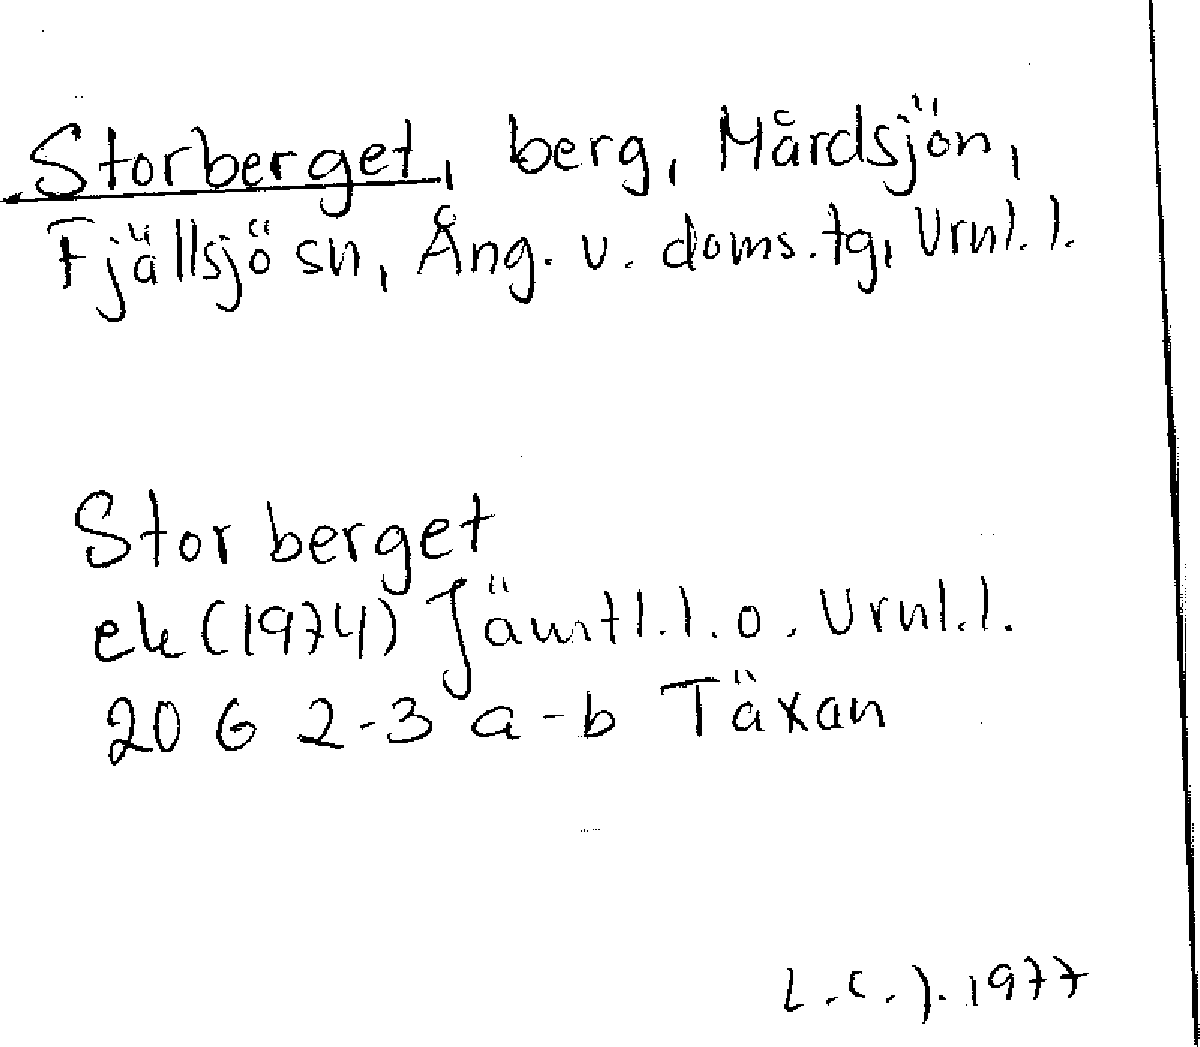 Storberget, berg, Mårdsjön,
Fjällsjö sn, Ång. v. doms.tg, Vrnl.l.
Storberget
ek (1974) Jämtl.l.o. Vrnl.l.
20 G 2-3 a-b Täxan
L.C.J. 1977